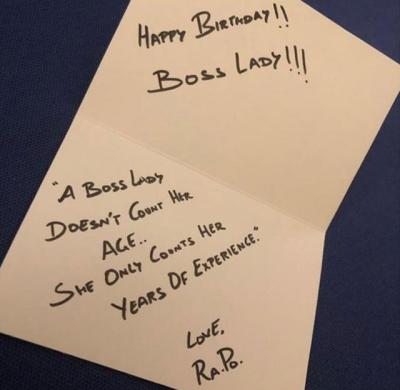 Happy Birthday!!
Boss Lady!!!
"A Boss Lady
Doesn't Count Her
Age..
She Only Counts Her
Years Of Experience."
Love,
Ra.Po.